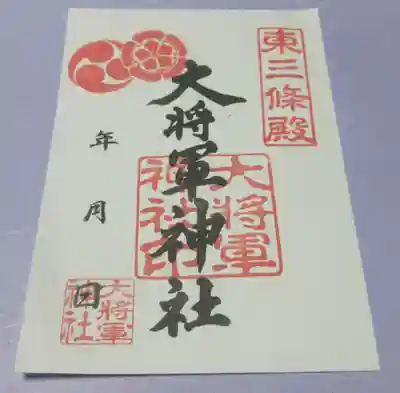 東三條殿
大将軍神社
大將軍
神社印
年 月 日
大將軍
神社